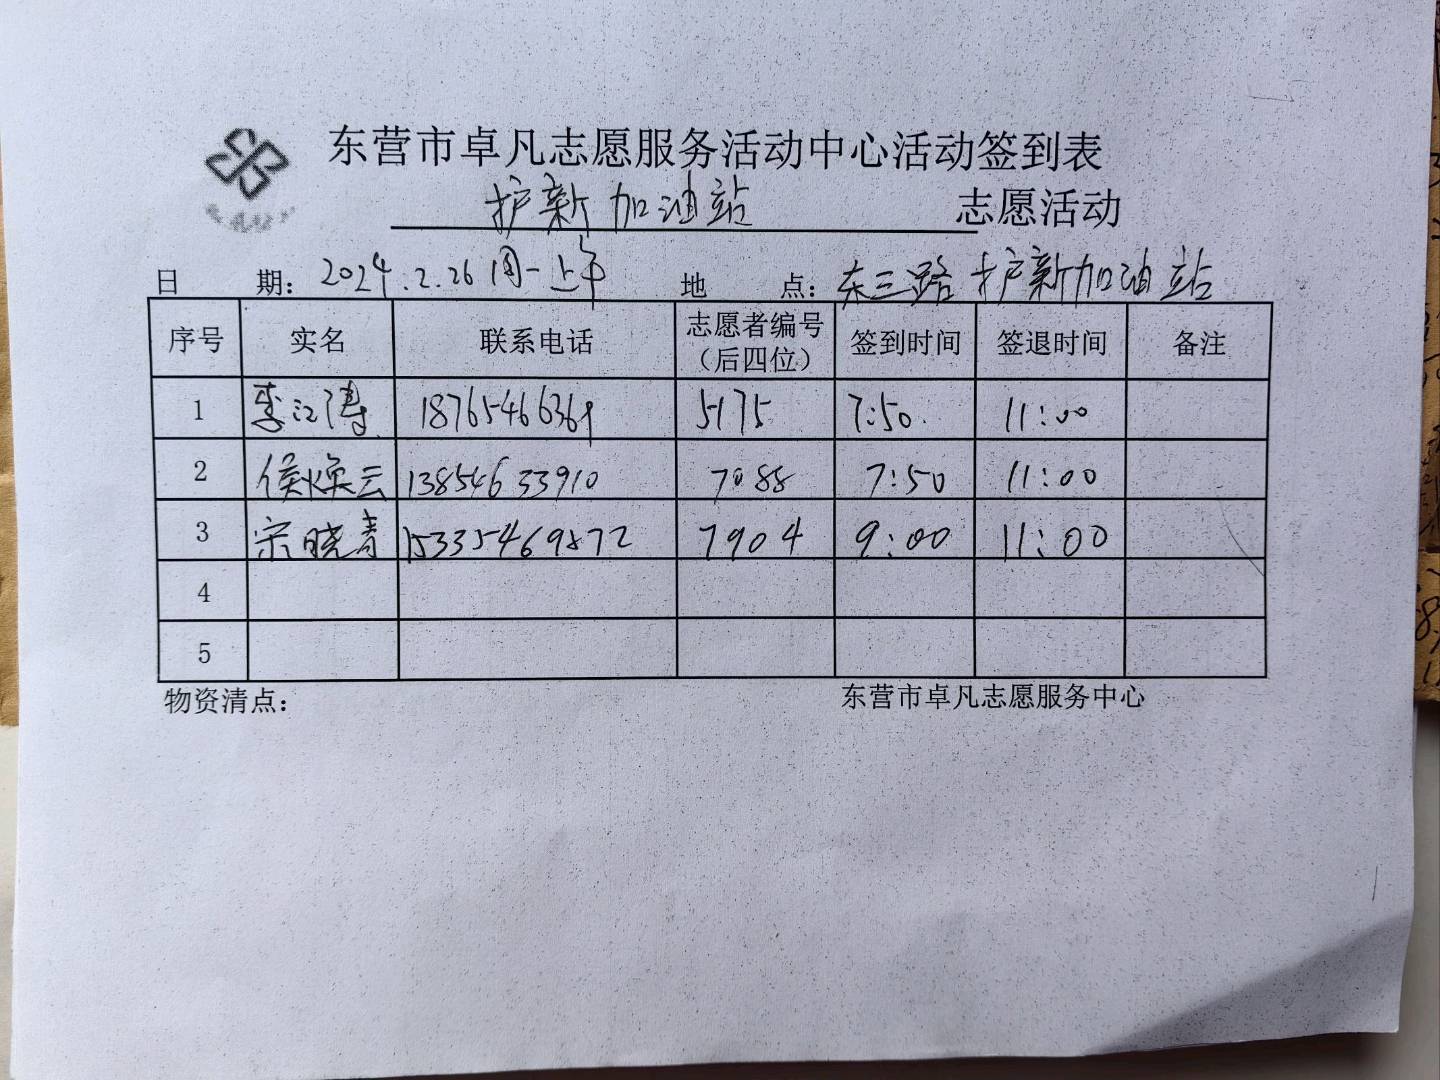 东营市卓凡志愿服务活动中心活动签到表
护新加油站 志愿活动
日 期：2024.2.26周一上午 地 点：东三路护新加油站
序号 实名 联系电话 志愿者编号（后四位） 签到时间 签退时间 备注
1 李江涛 18765466369 5175 7:50 11:00
2 侯焕云 13854633910 7088 7:50 11:00
3 宋晓青 15335469572 7904 9:00 11:00
4
5
物资清点： 东营市卓凡志愿服务中心